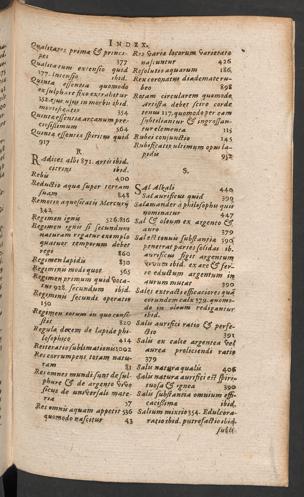 INDEX.
Qualitates primæ & princi-
pes 377
Qualitatum extensio quid
177. intensio ibid.
Quinta essentia quomodo
ex sulphure fixo extrahatur
352. ejus usus in morbis ibid.
354
Quinta essentia arcanum pre-
ciosissimum 564
Quinta essentia spiritus quid
917
R.
Radices albi 871. aeris ibid.
ibid.
Rebis 400
Reductio aqua super terram
suam 848
Remotes aquositatis Mercurij
342
Regimen ignis 526.816
Regimen ignis si secundum
naturam regatur exemplo
quatuor temporum debet
regi 860
Regimen lapidis 830
Regiminis modi quot 565
Regimen primum quid
928. secundum ibid.
Regiminis secundi operatio
150
Regimen eorum in quo consi-
stit 820
Regula decem de lapide phi-
losophico 414
Reiteratio sublimationis 1002
Res corrumpens totam natu-
ram 81
Res omnes mundi sunt de sul-
phure & de argento
sicus de universali mate-
ria 37
Res omnis aquam appetit 536
quomodo nascitur 43
Res variæ locorum varietate
nascuntur 426
Resolutes aquarum 186.
Rex coronatus diademate ru-
beo 898
Rotam circularem quomodo
Artista debet scire corde
tenus 117. quomodo per eam
subtiliantur & ingrossan-
tur elementa 115
Rubei conjunctio 145
Rubificatio ultimum opus la-
pidis 932
S.
Sal Alkali 440
Sal aurificus quid 399
Salamander à philosophis quis
nominatur 447
Sal & oleum ex argento &
auro 379
Salis tenuis substantia 390
penetrat partes solidas ib.
aurificus figit argentum
vivum ibid. ex ære & fer-
re eductum argentum in
aurum mutat 390
Sales extracto efficaciores quã
eorundem calx 379. quomo-
do in oleum redigantur
ibid.
Salis aurifici ratio & perfe-
ctio 391
Salis ex calce argentea vel
aurea proliciendi ratio
379
Salis natura qualis 406
Salis natura aurifici est spiri-
tuosa & ignea 390
Salis substantia omnium effi-
cacissima ibid.
Salium mixtio 354. Edulcora-
ratio ibid. putrefactio ibid.
subli-